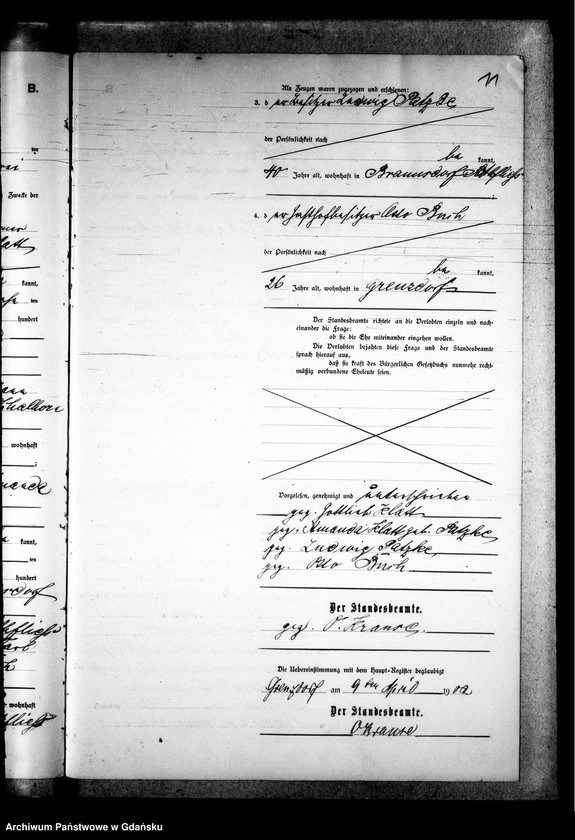 B.
ten
Zwecke der
kannt,
ten
hundert
wohnhaft
;
kannt,
ten
hundert
wohnhaft
11
Als Zeugen waren zugezogen und erschienen:
3. der Besitzer Ludwig Patzke
der Persönlichkeit nach
be kannt,
40 Jahre alt, wohnhaft in Braunsdorf
;
4. der Gasthofbesitzer Otto Busch
der Persönlichkeit nach
be kannt,
26 Jahre alt, wohnhaft in Grenzdorf
Der Standesbeamte richtete an die Verlobten einzeln und nach-
einander die Frage:
ob sie die Ehe miteinander eingehen wollen.
Die Verlobten bejahten diese Frage und der Standesbeamte
sprach hierauf aus,
daß sie kraft des Bürgerlichen Gesetzbuchs nunmehr recht-
mäßig verbundene Eheleute seien.
Vorgelesen, genehmigt und unterschrieben
gez. Gottlieb Klatt
gez. Amanda Klatt geb. Patzke
gez. Ludwig Patzke
gez. Otto Busch
Der Standesbeamte.
gez. O. Krause.
Die Uebereinstimmung mit dem Haupt-Register beglaubigt
Grenzdorf am 9ten April 1902
Der Standesbeamte.
O Krause
Archiwum Państwowe w Gdańsku